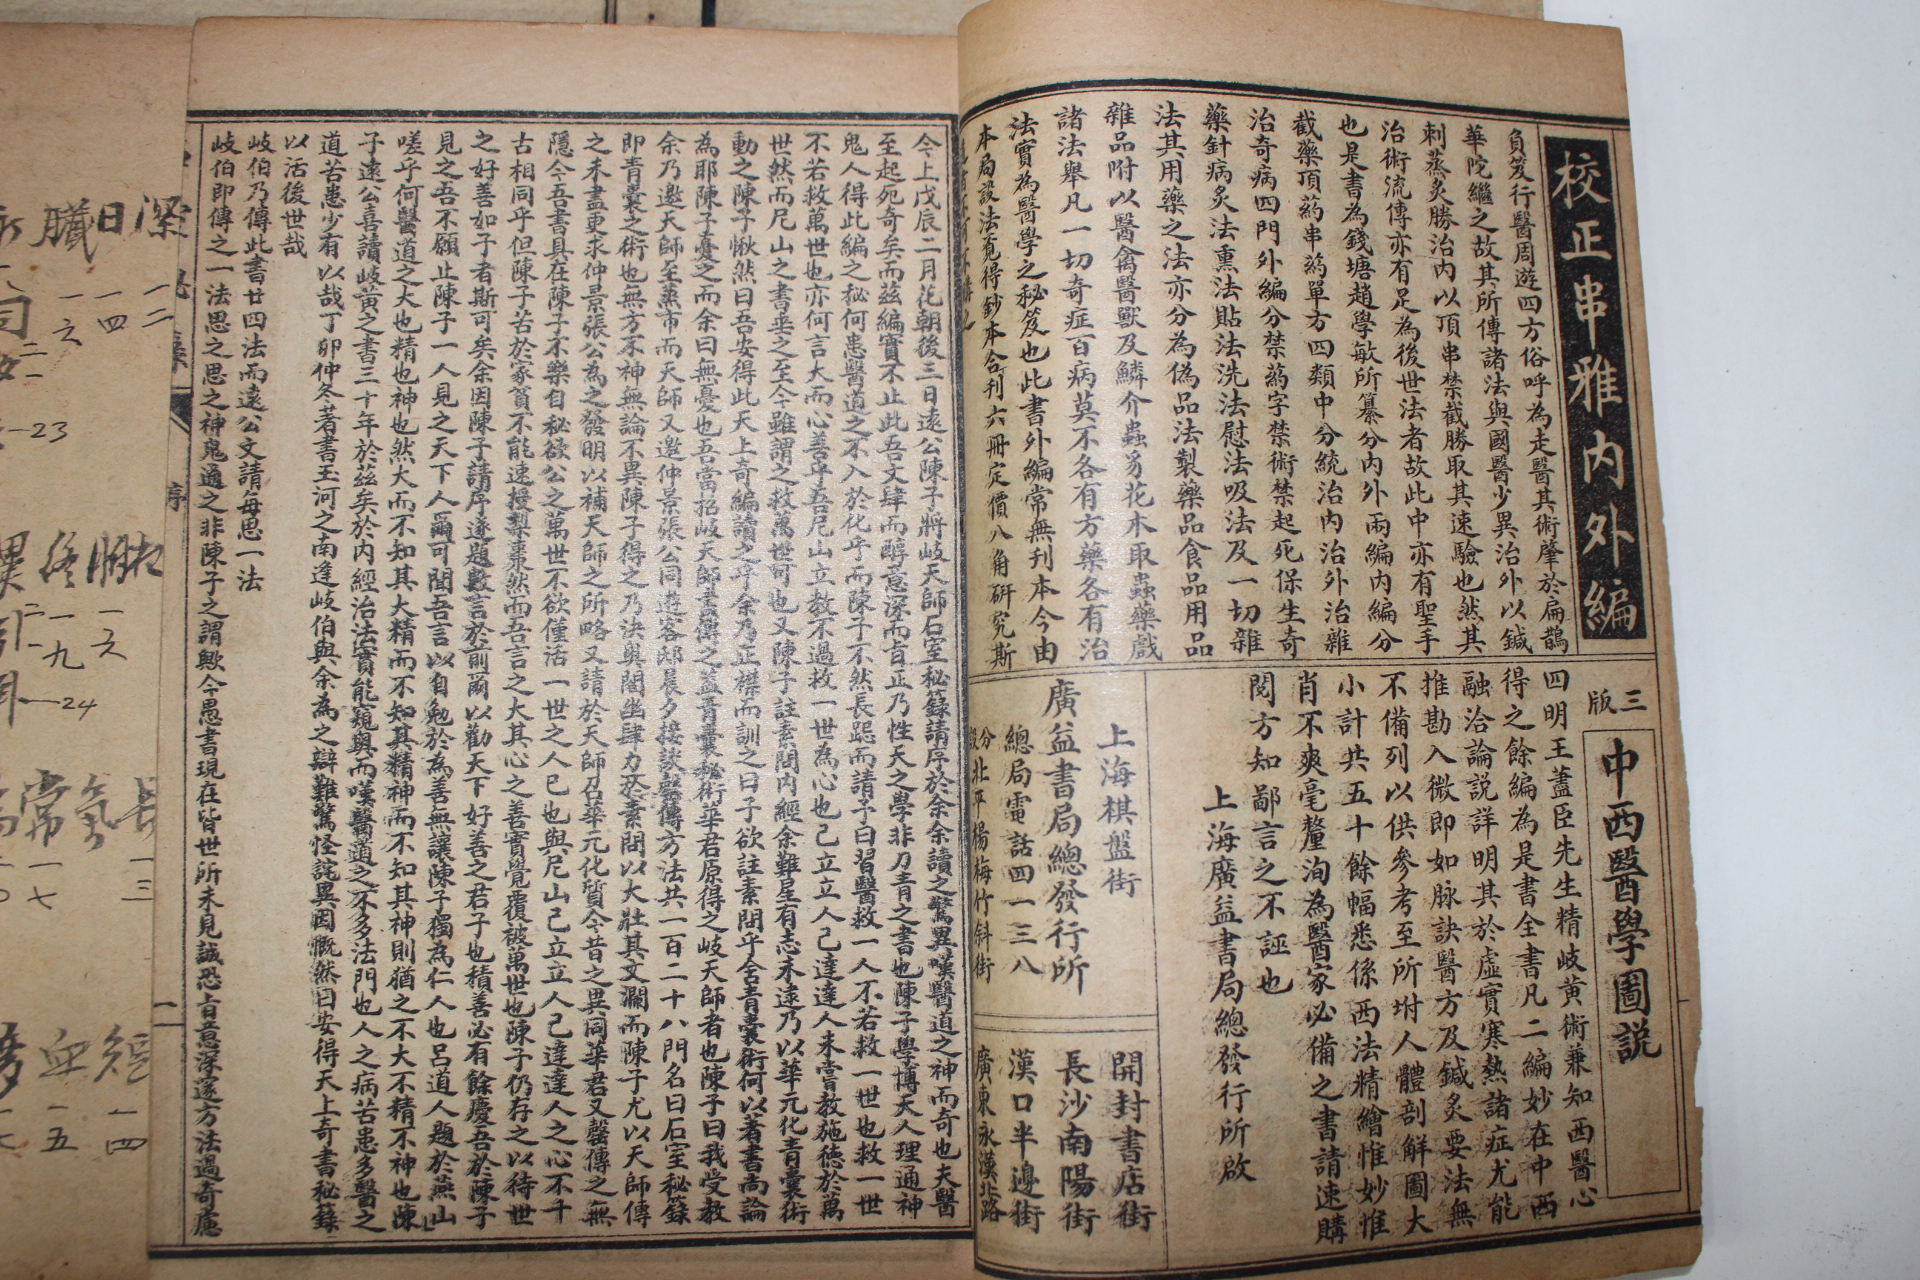 校正串雅內外編
負笈行醫周遊四方俗呼為走醫其術肇於扁鵲
華陀繼之故其所傳諸法與國醫少異治外以鍼
刺蒸灸勝治內以頂串禁截勝取其速驗也然其
治術流傳亦有足為後世法者故此中亦有聖手
也是書為錢塘趙學敏所纂分內外兩編內編分
截藥頂葯串葯單方四類中分統治內治外治雜
治奇病四門外編分禁葯字禁術禁起死保生奇
藥針病灸法熏法貼法洗法慰法吸法及一切雜
法其用藥之法亦分為偽品法製藥品食品用品
雜品附以醫禽醫獸及鱗介蟲豸花木取蟲藥戲
諸法舉凡一切奇症百病莫不各有方藥各有治
法實為醫學之秘笈也此書外編常無刊本今由
本局設法覓得鈔本合刊六冊定價八角研究斯
三版
中西醫學圖說
四明王藎臣先生精岐黃術兼知西醫心
得之餘編為是書全書凡二編妙在中西
融洽論說詳明其於虛實寒熱諸症尤能
推勘入微即如脉訣醫方及鍼灸要法無
不備列以供參考至所坿人體剖解圖大
小計共五十餘幅悉係西法精繪惟妙惟
肖不爽毫釐洵為醫家必備之書請速購
閱方知鄙言之不誣也
上海廣益書局總發行所啟
上海棋盤街
廣益書局總發行所
總局電話四一三八
分北平楊梅竹斜街
開封書店街
長沙南陽街
漢口半邊街
廣東永漢北路
今上戊辰二月花朝後三日遠公陳子將岐天師石室秘籙請序於余余讀之驚異嘆醫道之神而奇也夫醫
至起死奇矣而茲編實不止此吾文肆而醇意深而旨正乃性天之學非刀青之書也陳子學博天人理通神
鬼人得此編之秘何患醫道之不入於化乎而陳子不然長跽而請予曰習醫救一人不若救一世也救一世
不若救萬世也亦何言大而心善乎吾尼山立教不過救一世為心也己立立人己達達人未嘗教施德於萬
世然而尼山之書垂之至今雖謂之救萬世可也又陳子註素問內經余難星有志未逮乃以華元化青囊術
動之陳子愀然曰吾安得此天上奇編讀之乎余乃正襟而訓之曰子欲註素問乎舍青囊術何以著書尚論
為耶陳子憂之而余曰無憂也吾當招岐天師盡傳之蓋青囊秘術華君原得之岐天師者也陳子曰我受教
余乃邀天師至燕市而天師又邀仲景張公同遊客邸晨夕接談盡傳方法共一百二十八門名曰石室秘籙
即青囊之術也無方不神無論不異陳子得之乃決奧闡幽肆力於素問以大壯其文瀾而陳子尤以天師傳
之未盡更求仲景張公為之發明以補天師之所略又請於天師召華元化質今昔之異同華君又罄傳之無
隱今吾書具在陳子不樂自秘欲公之萬世不欲僅活一世之人已也與尼山己立立人己達達人之心不千
古相同乎但陳子苦於家貧不能速授梨棗然而吾言之大其心之善實覺覆被萬世也陳子仍存之以待世
之好善如子者斯可矣余因陳子請序遂題數言於前爾以勸天下好善之君子也積善必有餘慶吾於陳子
見之吾不願止陳子一人見之天下人爾可聞吾言以自勉於為善無讓陳子獨為仁人也呂道人題於燕山
嗟乎何醫道之大也精也神也然大而不知其大精而不知其精神而不知其神則猶之不大不精不神也陳
子遠公喜讀岐黃之書三十年於茲矣於內經治法實能窺奧而嘆醫道之不多法門也人之病苦患多醫之
道苦患少有以哉丁卯仲冬著書玉河之南逢岐伯與余為之辯難驚怪詫異因慨然曰安得天上奇書秘籙
以活後世哉
岐伯乃傳此書廿四法而遠公文請每思一法
岐伯即傳之一法思之思之神鬼通之非陳子之謂歟今愚書現在皆世所未見誠恐旨意深邃方法過奇慮
序
一
深 一二
日 一四
臟 一六
23
24
長 一三
氣
常 一七
短 一四
血 一五